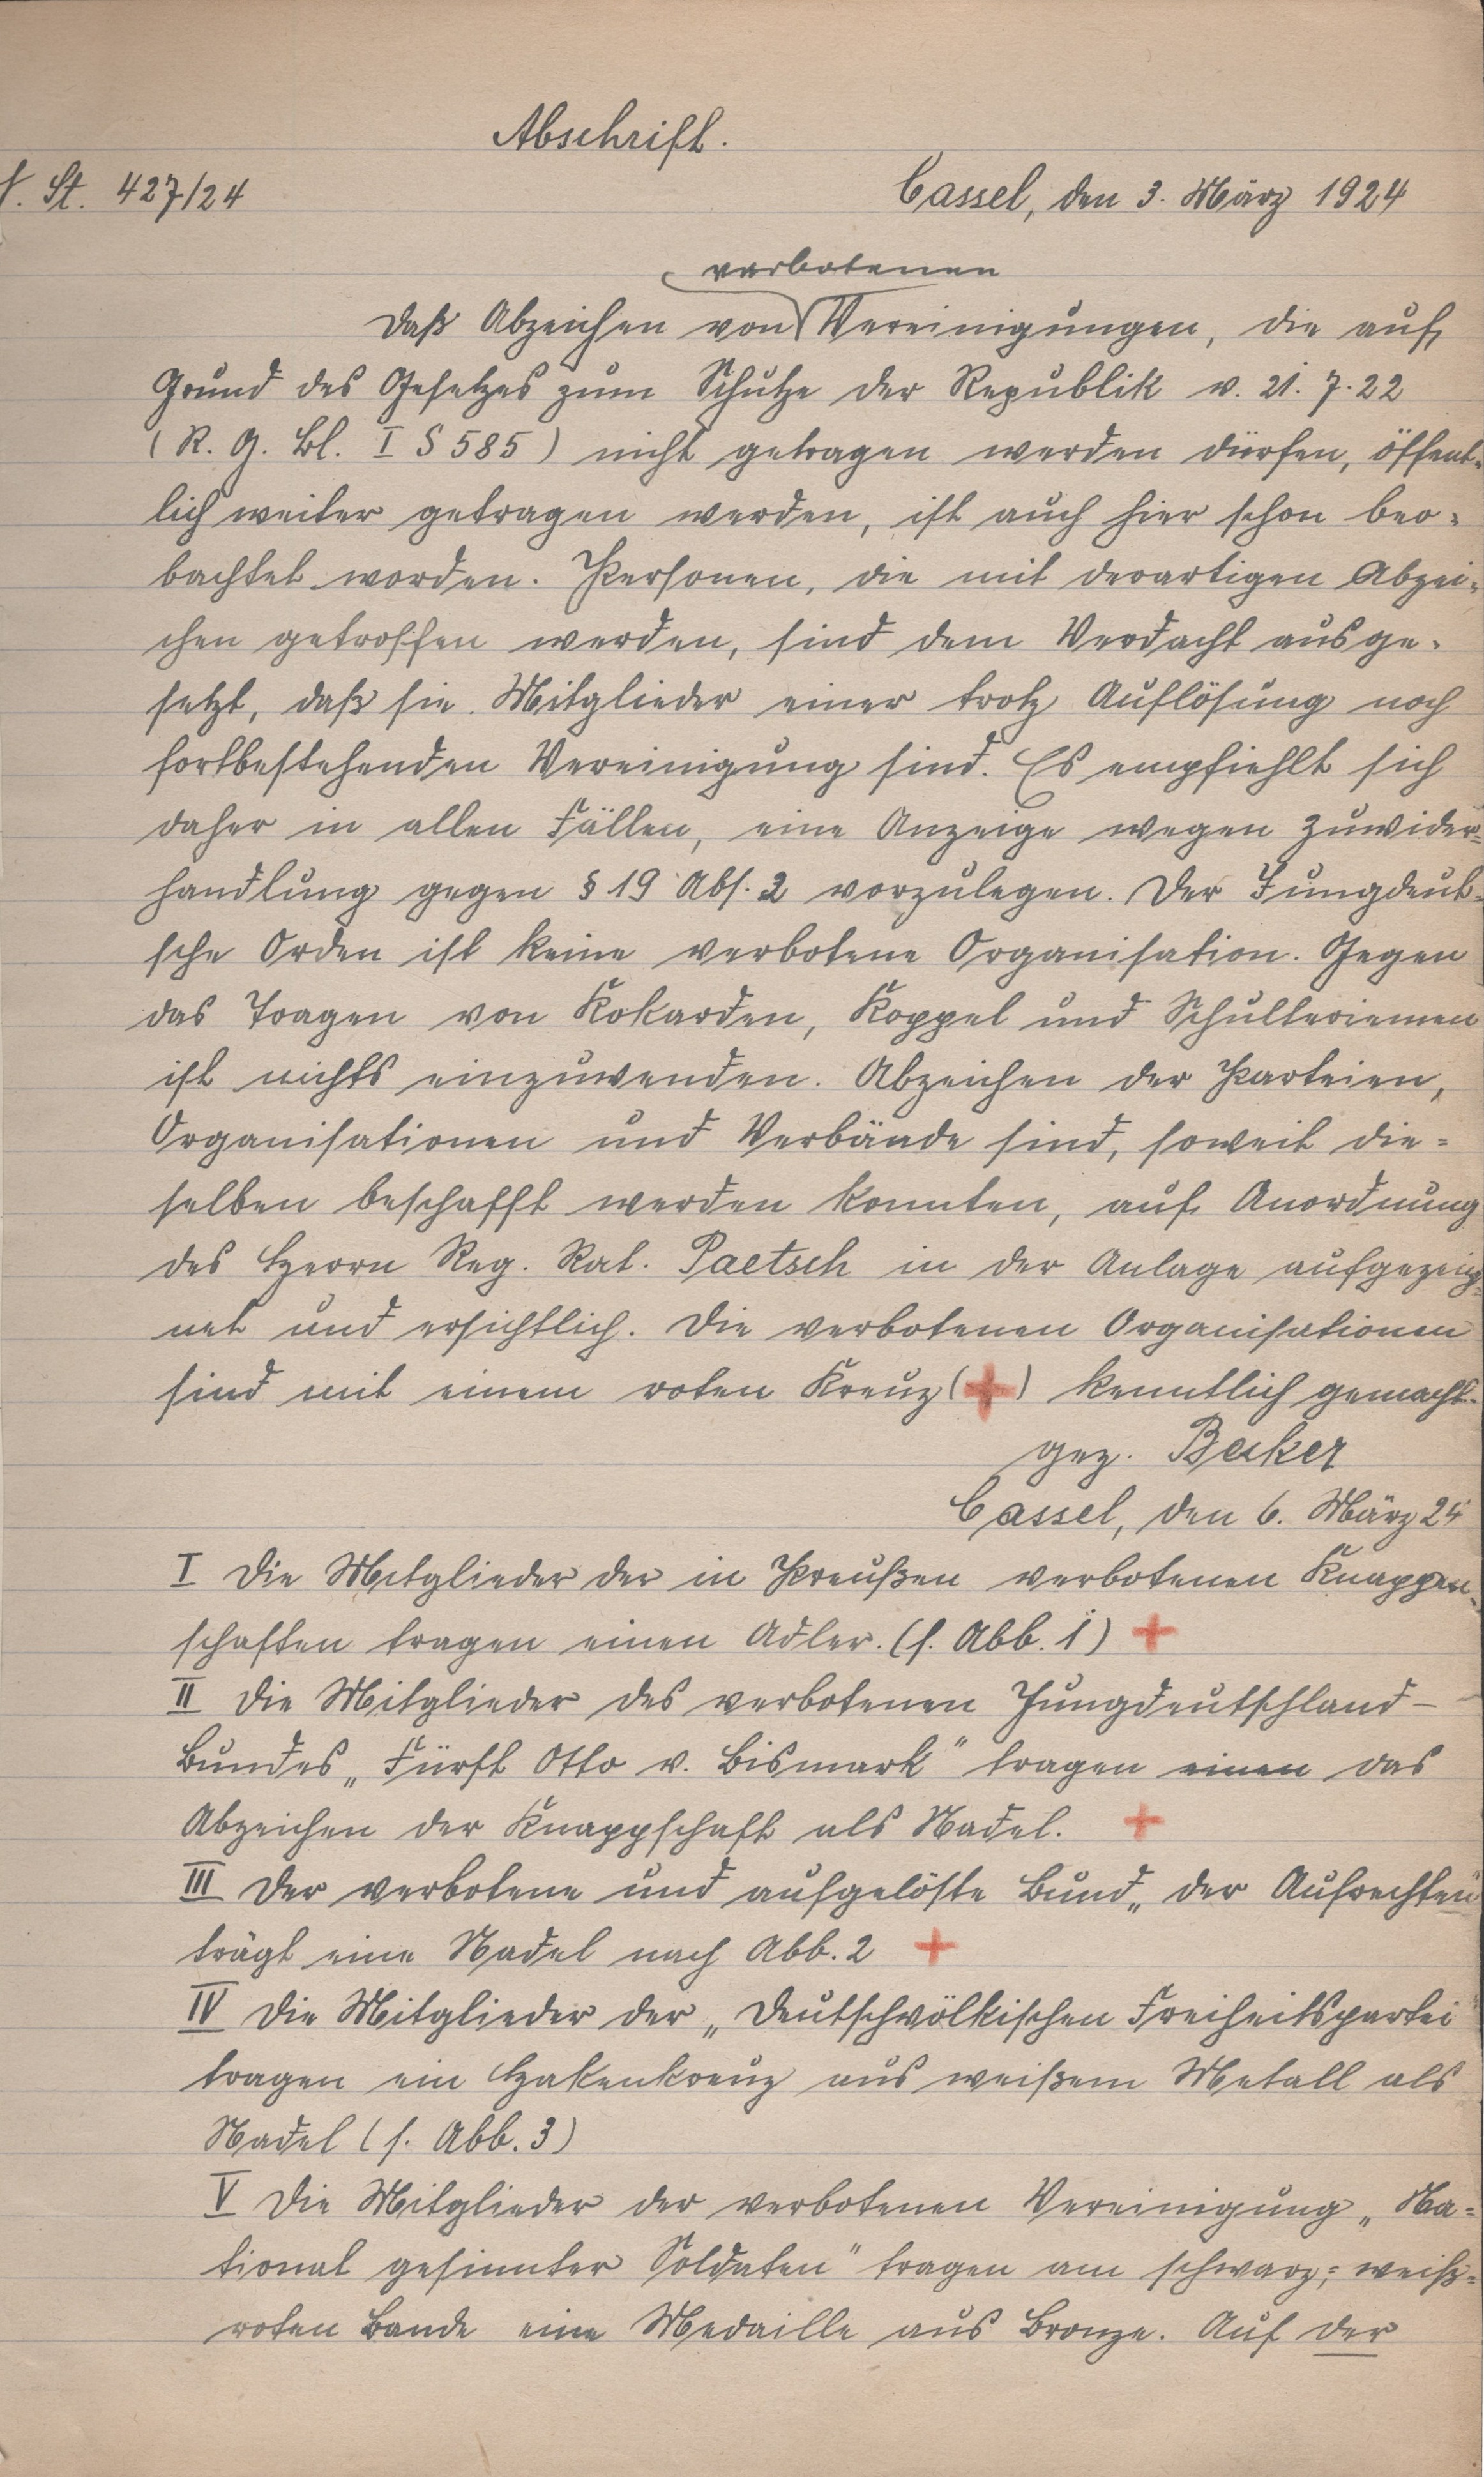 Abschrift.
St. 427/24
Cassel, den 3. März 1924
verbotenen
Daß Abzeichen von Vereinigungen, die auf
Grund des Gesetzes zum Schutze der Republik v. 21. 7. 22
(R. G. Bl. I S 585) nicht getragen werden dürfen, öffent-
lich weiter getragen werden, ist auch hier schon beo-
bachtet worden. Personen, die mit derartigen Abzei-
chen getroffen werden, sind dem Verdacht ausge-
setzt, daß sie Mitglieder einer trotz Auflösung noch
fortbestehenden Vereinigung sind. Es empfiehlt sich
daher in allen Fällen, eine Anzeige wegen Zuwider-
handlung gegen § 19 Abs. 2 vorzulegen. Der Jungdeut-
sche Orden ist keine verbotene Organisation. Gegen
das Tragen von Kokarden, Koppel und Schulterriemen
ist nichts einzuwenden. Abzeichen der Parteien,
Organisationen und Verbände sind, soweit die-
selben beschafft werden konnten, auf Anordnung
des Herrn Reg. Rat. Paetsch in der Anlage aufgezeich-
net und ersichtlich. Die verbotenen Organisationen
sind mit einem roten Kreuz (+) kenntlich gemacht.
gez. Becker
Cassel, den 6. März 24
I Die Mitglieder der in Preußen verbotenen Knappen-
schaften tragen einen Adler. (s. Abb. 1) +
II Die Mitglieder des verbotenen Jungdeutschland-
Bundes „Fürst Otto v. Bismark" tragen einen das
Abzeichen der Knappschaft als Nadel. +
III Der verbotene und aufgelöste Bund „der Aufrechten"
trägt eine Nadel nach Abb. 2 +
IV Die Mitglieder der „Deutschvölkischen Freiheitspartei
tragen ein Hakenkreuz aus weißem Metall als
Nadel (s. Abb. 3)
V Die Mitglieder der verbotenen Vereinigung „Na-
tional gesinnter Soldaten" tragen am schwarz-weiß-
roten Bande eine Medaille aus Bronze. Auf der